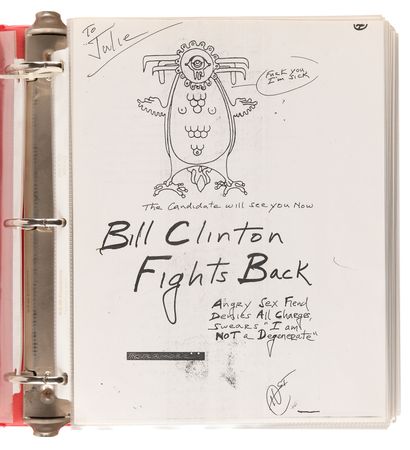 To
Julie
Fuck you,
I'm sick
The Candidate will see you Now
Bill Clinton
Fights Back
Angry Sex Fiend
Denies All Charges,
Swears "I am
NOT a Degenerate"